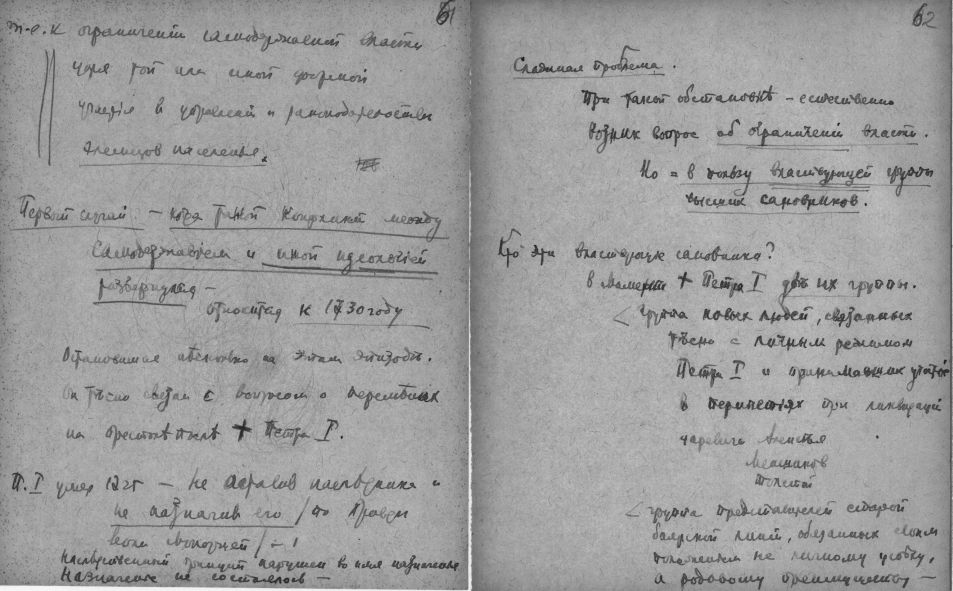 61
т.е. к ограничению самодержавной власти
той или иной формой
участия в управлении и законодательстве
элементов населения.
Первый случай — когда такой конфликт между
самодержавием и иной идеологией
развернулся —
относится к 1730 году
Остановимся на этом эпизоде.
Он тесно связан с вопросом о переменах
на престоле после † Петра I.
П. I умер 1725 — не оставив наследника и
не назначив его / по Правде
воли монаршей / — !
Наследственный принцип нарушен во имя назначения
Назначение не состоялось —
62
Сложная проблема.
При такой обстановкѣ — естественно
возник вопрос об ограничении власти.
Но = в пользу властвующей группы
высших сановников.
Кто эти властвующие сановники?
в момент † Петра I двѣ их группы.
< Группа новых людей, связанных
тѣсно с личным режимом
Петра I и принимавших участие
в перипетиях при ликвидации
царевича Алексѣя
Меншиков
Толстой
< группа представителей старой
боярской знати, обязанных своим
положением не личному успеху,
а родовому преимуществу —